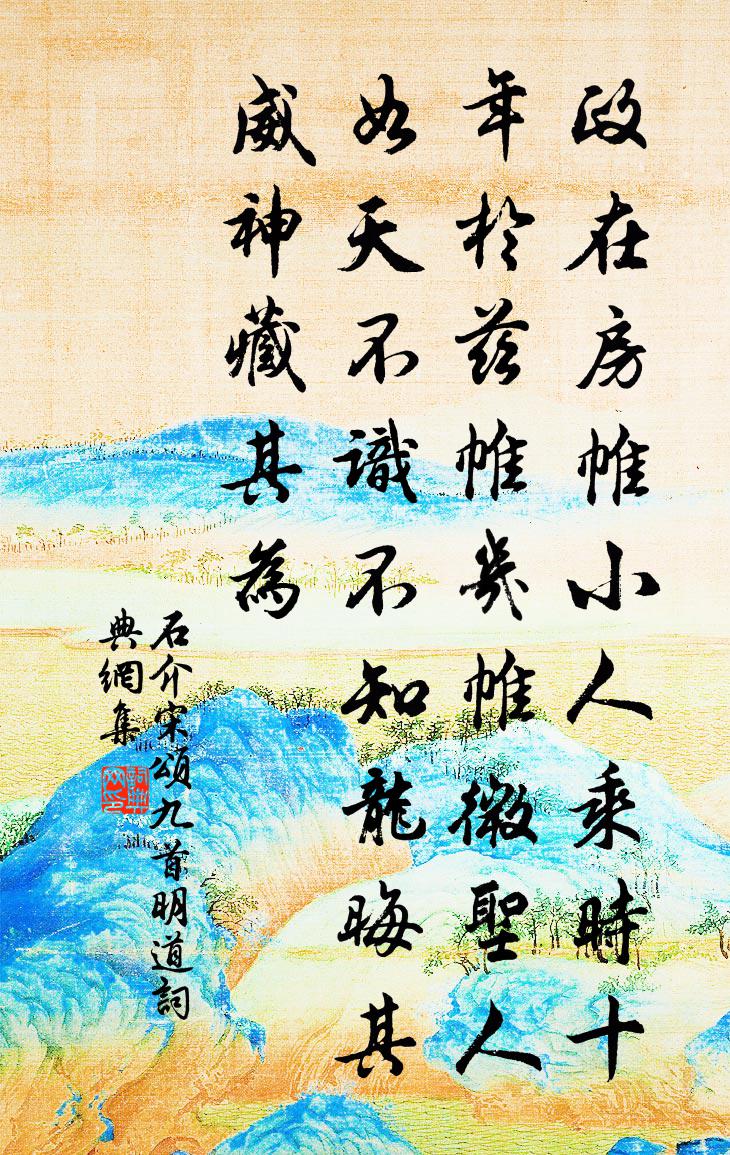 政在房帷小人乘時十
年於茲帷幾帷微聖人
如天不識不知龍晦其
威神藏其為
石介宋頌九首明道詞
典網集